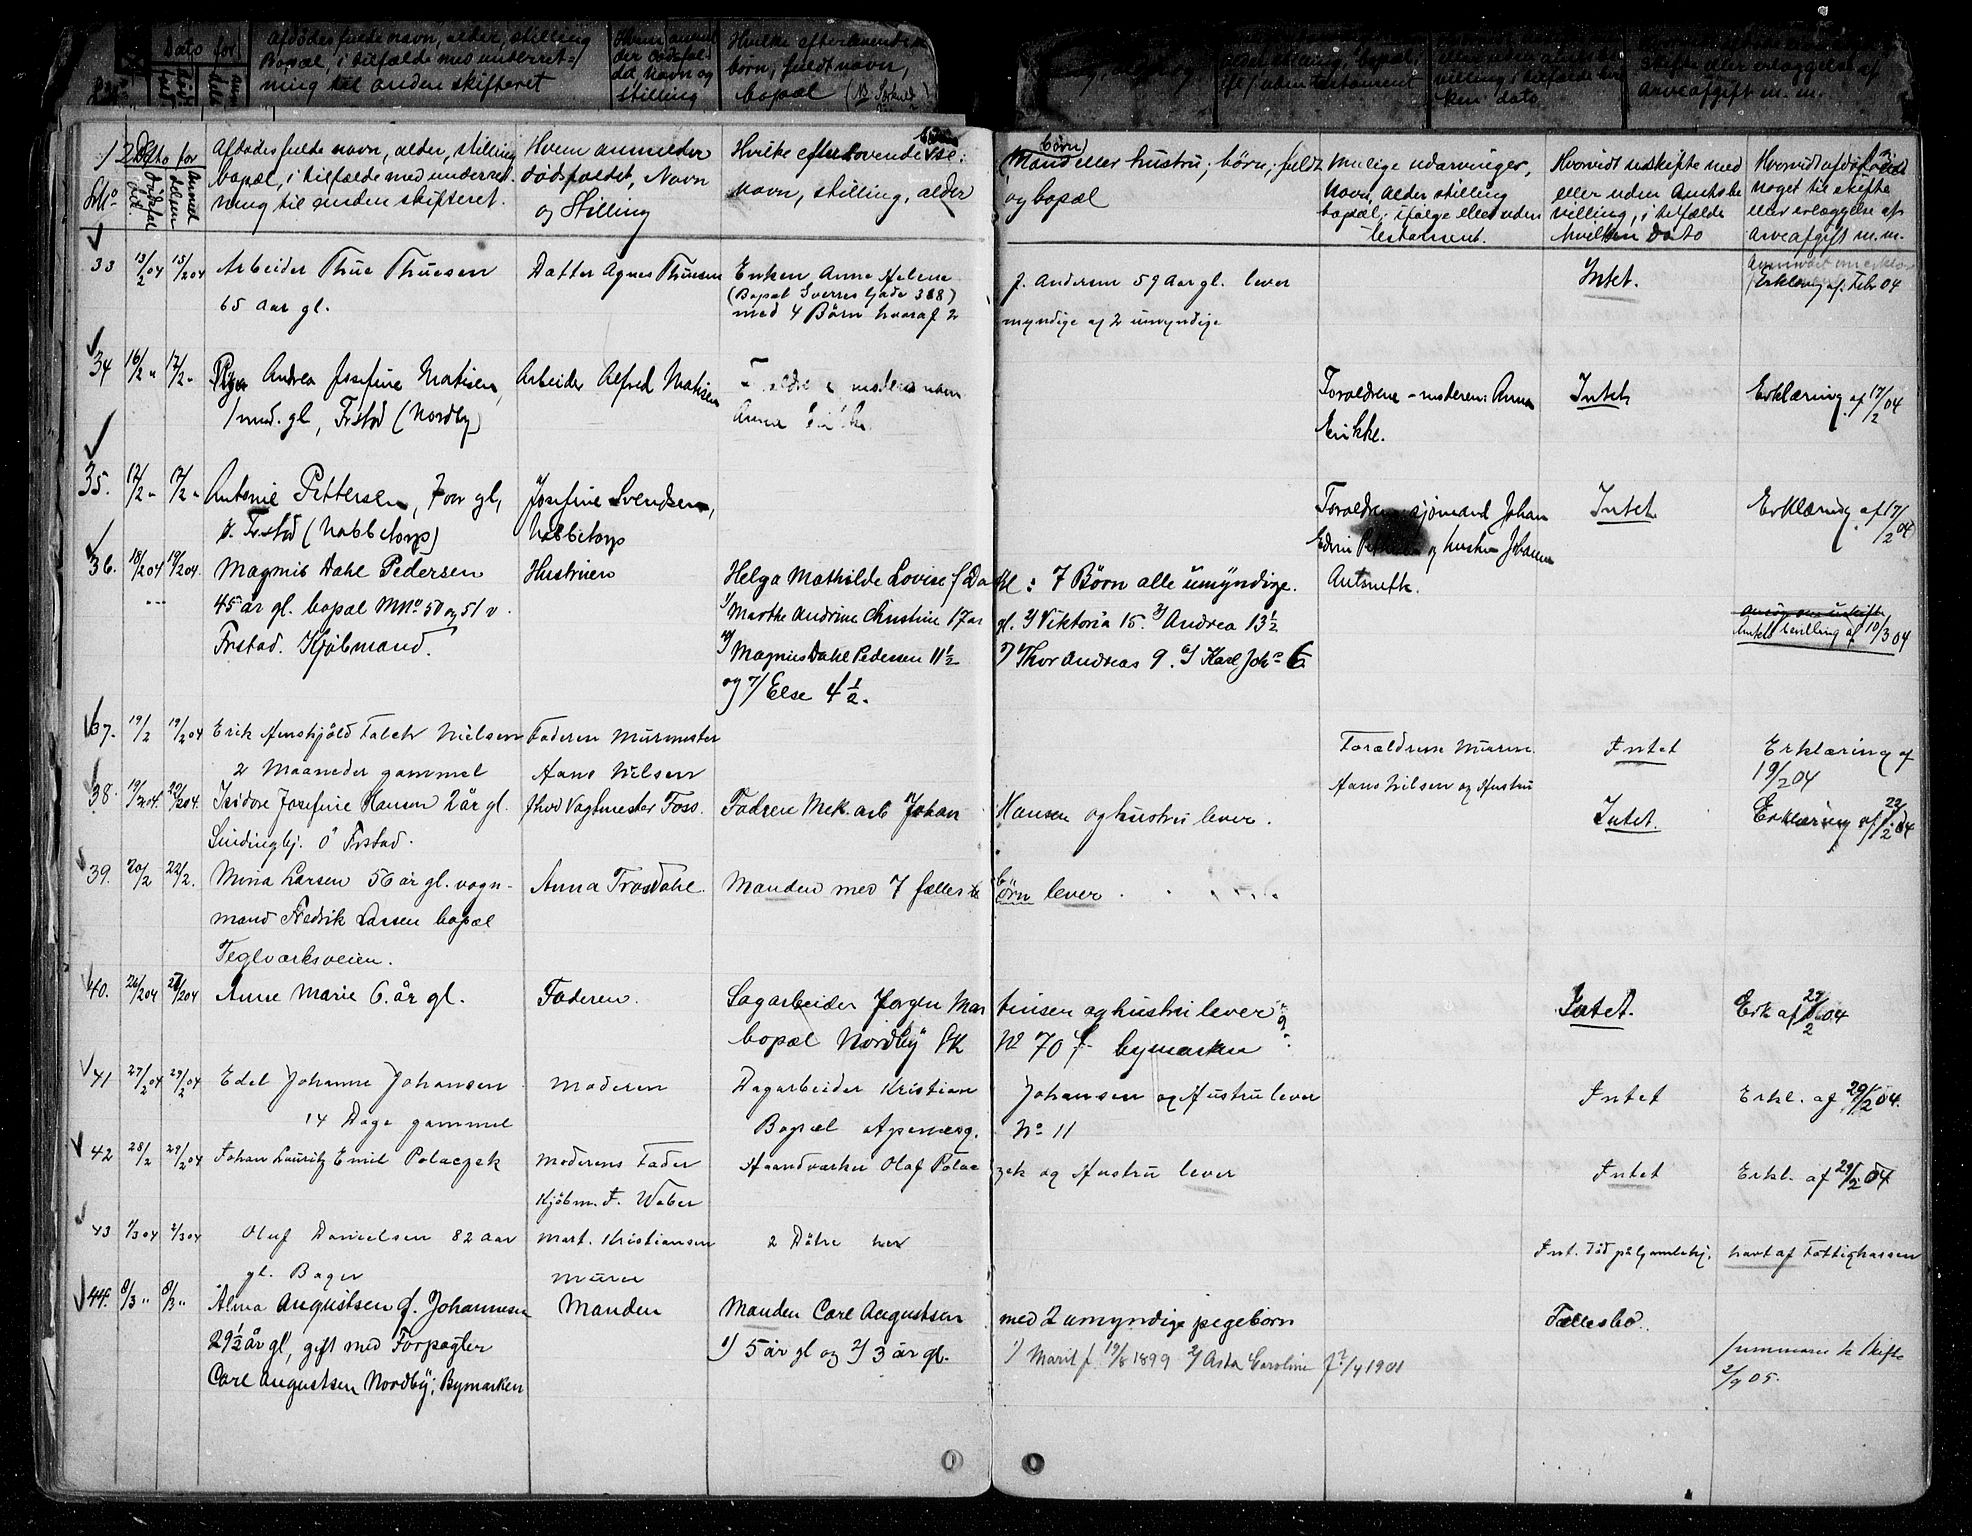 Dato for
Afdødes fulde navn, alder, stilling
Bopæl, i tilfælde med underret-
ning til anden skifteret
der dødsfal-
det, navn og
stilling
Hvilke efterlevende
børn, fuldt navn,
bopæl
uden testament
ken dato
Skifte eller erlæggelse af
Arveafgift m. m.
Dato for
Dødsfaldet
Anmeldelsen
Afdødes fulde navn, alder, stilling
bopæl, i tilfælde med underret-
ning til anden skifteret.
Hvem anmelder
dødsfaldet, Navn
og Stilling
Hvilke efterlevende
navn, stilling, alder
børn
Mand eller hustru; børn; fuldt
og bopæl
Mulige udarvinger,
Navn, alder stilling
bopæl; ifølge eller uden
testament.
Hvorvidt uskifte med
eller uden Amtsbe
villing, i tilfælde
hvilken dato
Hvorvidt afdød
noget til skifte
eller erlæggelse af
Arveafgift m. m.
33 13/2 04 15/2 04 Arbeider Thue Thuesen Datter Agnes Thuesen Enken Anne Helene f. Andersen 59 Aar gl. lever Intet.
Erklæring af. Febr 04
65 aar gl. (Bopæl Sverres Gade 388)
med 4 Børn hvoraf 2 myndige og 2 umyndige
34 16/2 " 17/2 " Andrea Josefine Matisen, Arbeider Alfred Matisen
Forældrene - moderen: Anna Intet Erklæring af 17/2 04
1 mnd. gl, Frstad (Nordby)
Erikke.
35. 12/2 " 17/2 " Antonie Pettersen, 7 aar gl, Josefine Svendsen, Forældrene sjømand Johan Intet. Erklæring af 17/2 04
p. Frstad (Nabbetorp) Nabbetorp Edvin og hustru Johanne
Antonette.
36. 18/2 04 19/2 04. Magnus Dahl Pedersen Hustruen Helga Mathilde Lovise f Dahl: 7 Børn alle umyndige.
45 år gl. bopæl MNo 50 og 51 v. 1/ Marthe Andrine Christine 17 aar gl. 2/ Viktoria 15. 3/ Andrea 13½
Amtets bevilling af 10/3 04
Frstad. Kjøbmand. 4/ Magnus Dahl Pedersen 11½ 5/ Thor Andreas 9. 6/ Karl Joh 6
og 7/ Else 4½.
37. 19/2 19/2 04 Erik Falch Nielsen Faderen Murmester Forældrene Murm. Intet Erklæring af
2 Maaneder gammel Hans Nilsen Hans Nilsen og Hustru 19/2 04
38. 19/2 04. 22/2 04. Isidore Josefine Hansen 2 år gl. fhv Vagtmester Foss. Fadren Mek. arb Johan Hansen og hustru lever. Intet. Erklæring af 22/2 04
Sindingbj. Ø Frstad.
39. 20/2 22/2. Mina Larsen 56 år gl. vogn- Anna Trosdahl. Manden med 7 fælles børn lever.
mand Fredrik Larsen bopæl
Teglværksveien.
40. 26/2 04 27/2 04 Anne Marie 6. år gl. Faderen. Sagarbeider Jørgen Martinsen og hustru lever Intet. Erk af 27/2 04
bopæl Nordby No 70 f bymarken
41 27/2 04 29/2 04 Edel Johanne Johansen Moderen Dagarbeider Kristian Johansen og Hustru lever Intet Erkl. af 29/2 04.
14 Dage gammel Bopæl Apenesg. No 11
42 28/2 29/2 04 Johan Lauritz Emil Polaczek Moderens Fader Haandværker Olaf Polaczek og Hustru lever Intet Erkl. af 29/2 04
Kjøbm. F. Weber
43 1/3 04 2/3 04 Oluf Danielsen 82 aar Mart. Kristiansen 2 Døtre her Int. Død på Gamlehj. havt af Fattigkassen
gl. Bager Murer
44. 8/3 " 8/3 " Alma Augustsen f. Johannesen Manden Manden Carl Augustsen med 2 umyndige pigebørn Fællesbo.
29½ år gl, gift med Forpagter 1) 5 år gl og 2/ 3 år gl. 1) Marit f. 19/8 1899 2/ Asta Caroline f 2/4 1901 Summarisk Skifte
Carl Augustsen Nordby, Bymarken 2/9 05.